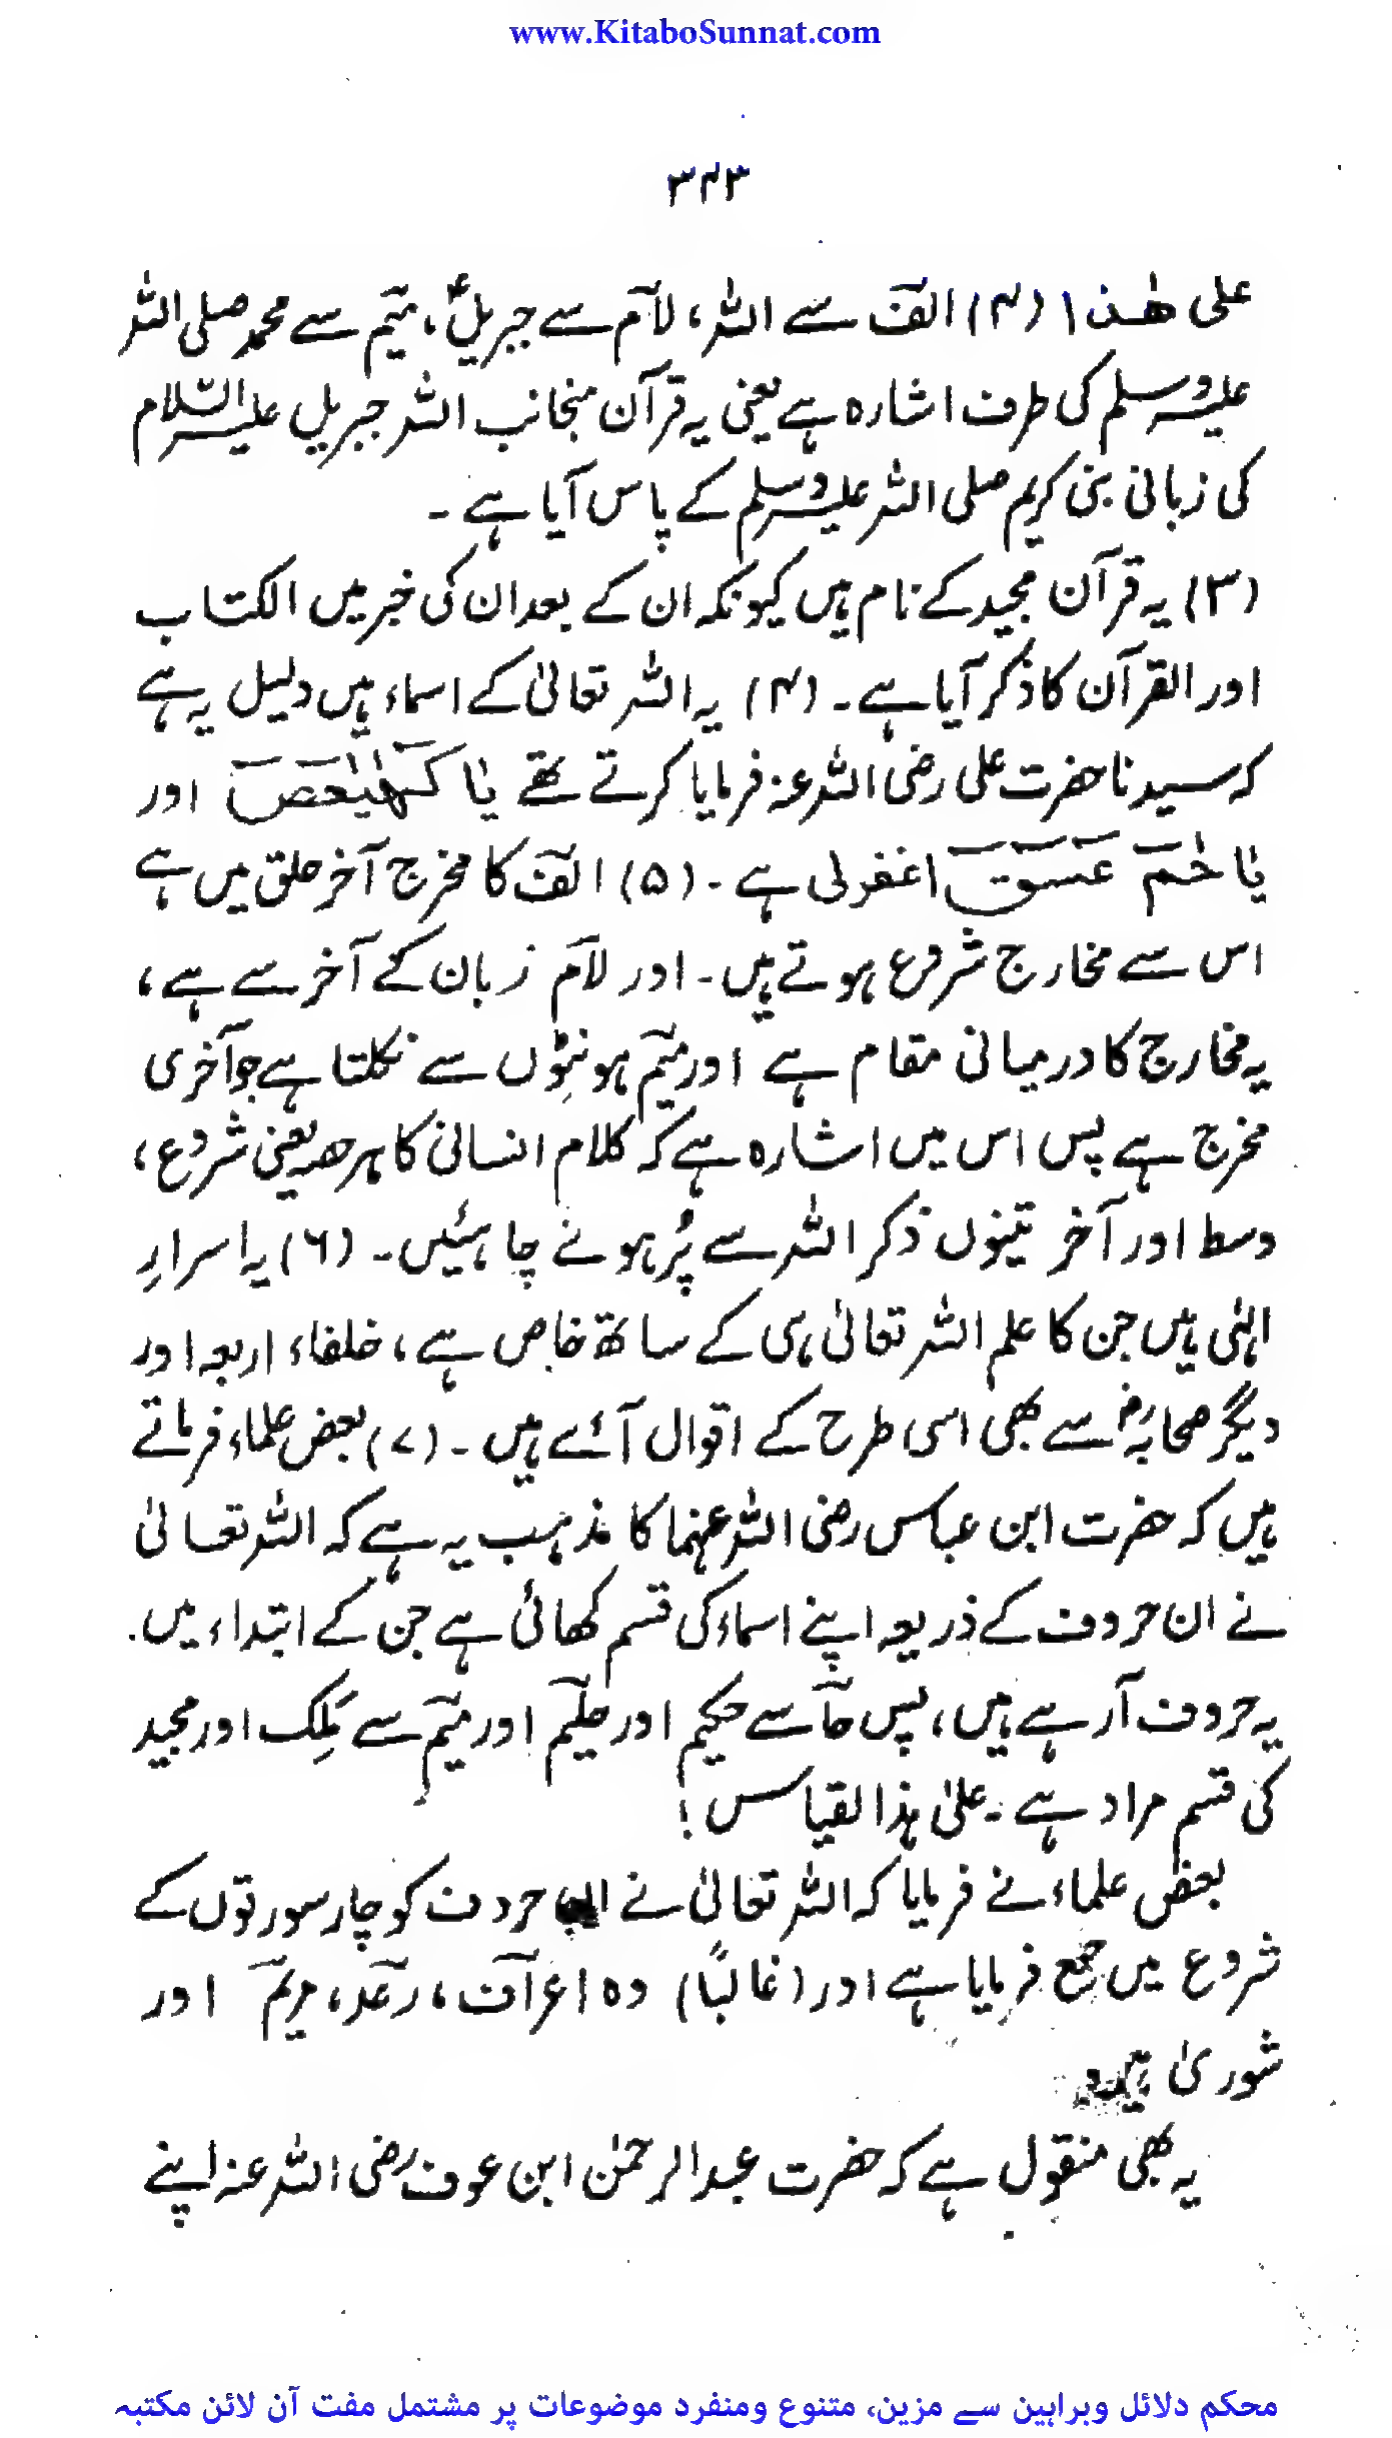 www.KitaboSunnat.com
۳۴۳
علی ھٰذا (۴) الٓف سے اللہ، لآم سے جبریلؑ، میٓم سے محمد صلی اللہ
علیہ وسلم کی طرف اشارہ ہے یعنی یہ قرآن منجانب اللہ جبریل علیہ السّلام
کی زبانی نبی کریم صلی اللہ علیہ وسلم کے پاس آیا ہے ۔
(۳) یہ قرآن مجید کے نام ہیں کیونکہ ان کے بعد ان کی خبر میں الکتاب
اور القرآن کا ذکر آیا ہے۔ (۴) یہ اللہ تعالیٰ کے اسماء ہیں دلیل یہ ہے
کہ سیدنا حضرت علی رضی اللہ عنہ فرمایا کرتے تھے یٰا کٓھٰیٰعٓصٓ اور
یٰا حٰمٓ عٓسٓقٓ اغفرلی ہے ۔ (۵) الٓف کا مخرج آخر حلق میں ہے
اس سے مخارج شروع ہوتے ہیں۔ اور لآم زبان کے آخر سے ہے،
یہ مخارج کا درمیانی مقام ہے اور میٓم ہونٹوں سے نکلتا ہے جو آخری
مخرج ہے پس اس میں اشارہ ہے کہ کلام انسانی کا ہر حصہ یعنی شروع،
وسط اور آخر تینوں ذکر اللہ سے پُر ہونے چاہئیں۔ (۶) یہ اسرارِ
الہٰی ہیں جن کا علم اللہ تعالیٰ ہی کے ساتھ خاص ہے، خلفاء اربعہ اور
دیگر صحابہؓ سے بھی اسی طرح کے اقوال آئے ہیں ۔ (۷) بعض علماء فرماتے
ہیں کہ حضرت ابن عباس رضی اللہ عنہما کا مذہب یہ ہے کہ اللہ تعالیٰ
نے ان حروف کے ذریعہ اپنے اسماء کی قسم کھائی ہے جن کے ابتداء میں
یہ حروف آرہے ہیں، پس حآ سے حکیم اور حلیم اور میٓم سے مَلِک اور مجید
کی قسم مراد ہے ۔ علیٰ ہذا القیاس !
بعض علماء نے فرمایا کہ اللہ تعالیٰ نے حروف کو چار سورتوں کے
شروع میں جمع فرمایا ہے اور (غالبًا) وہ اعرآف، رعٓد، مریٓم اور
شوریٰ ہیں۔
یہ بھی منقول ہے کہ حضرت عبدالرحمٰن ابن عوف رضی اللہ عنہ اپنے
محکم دلائل وبراہین سے مزین، متنوع ومنفرد موضوعات پر مشتمل مفت آن لائن مکتبہ